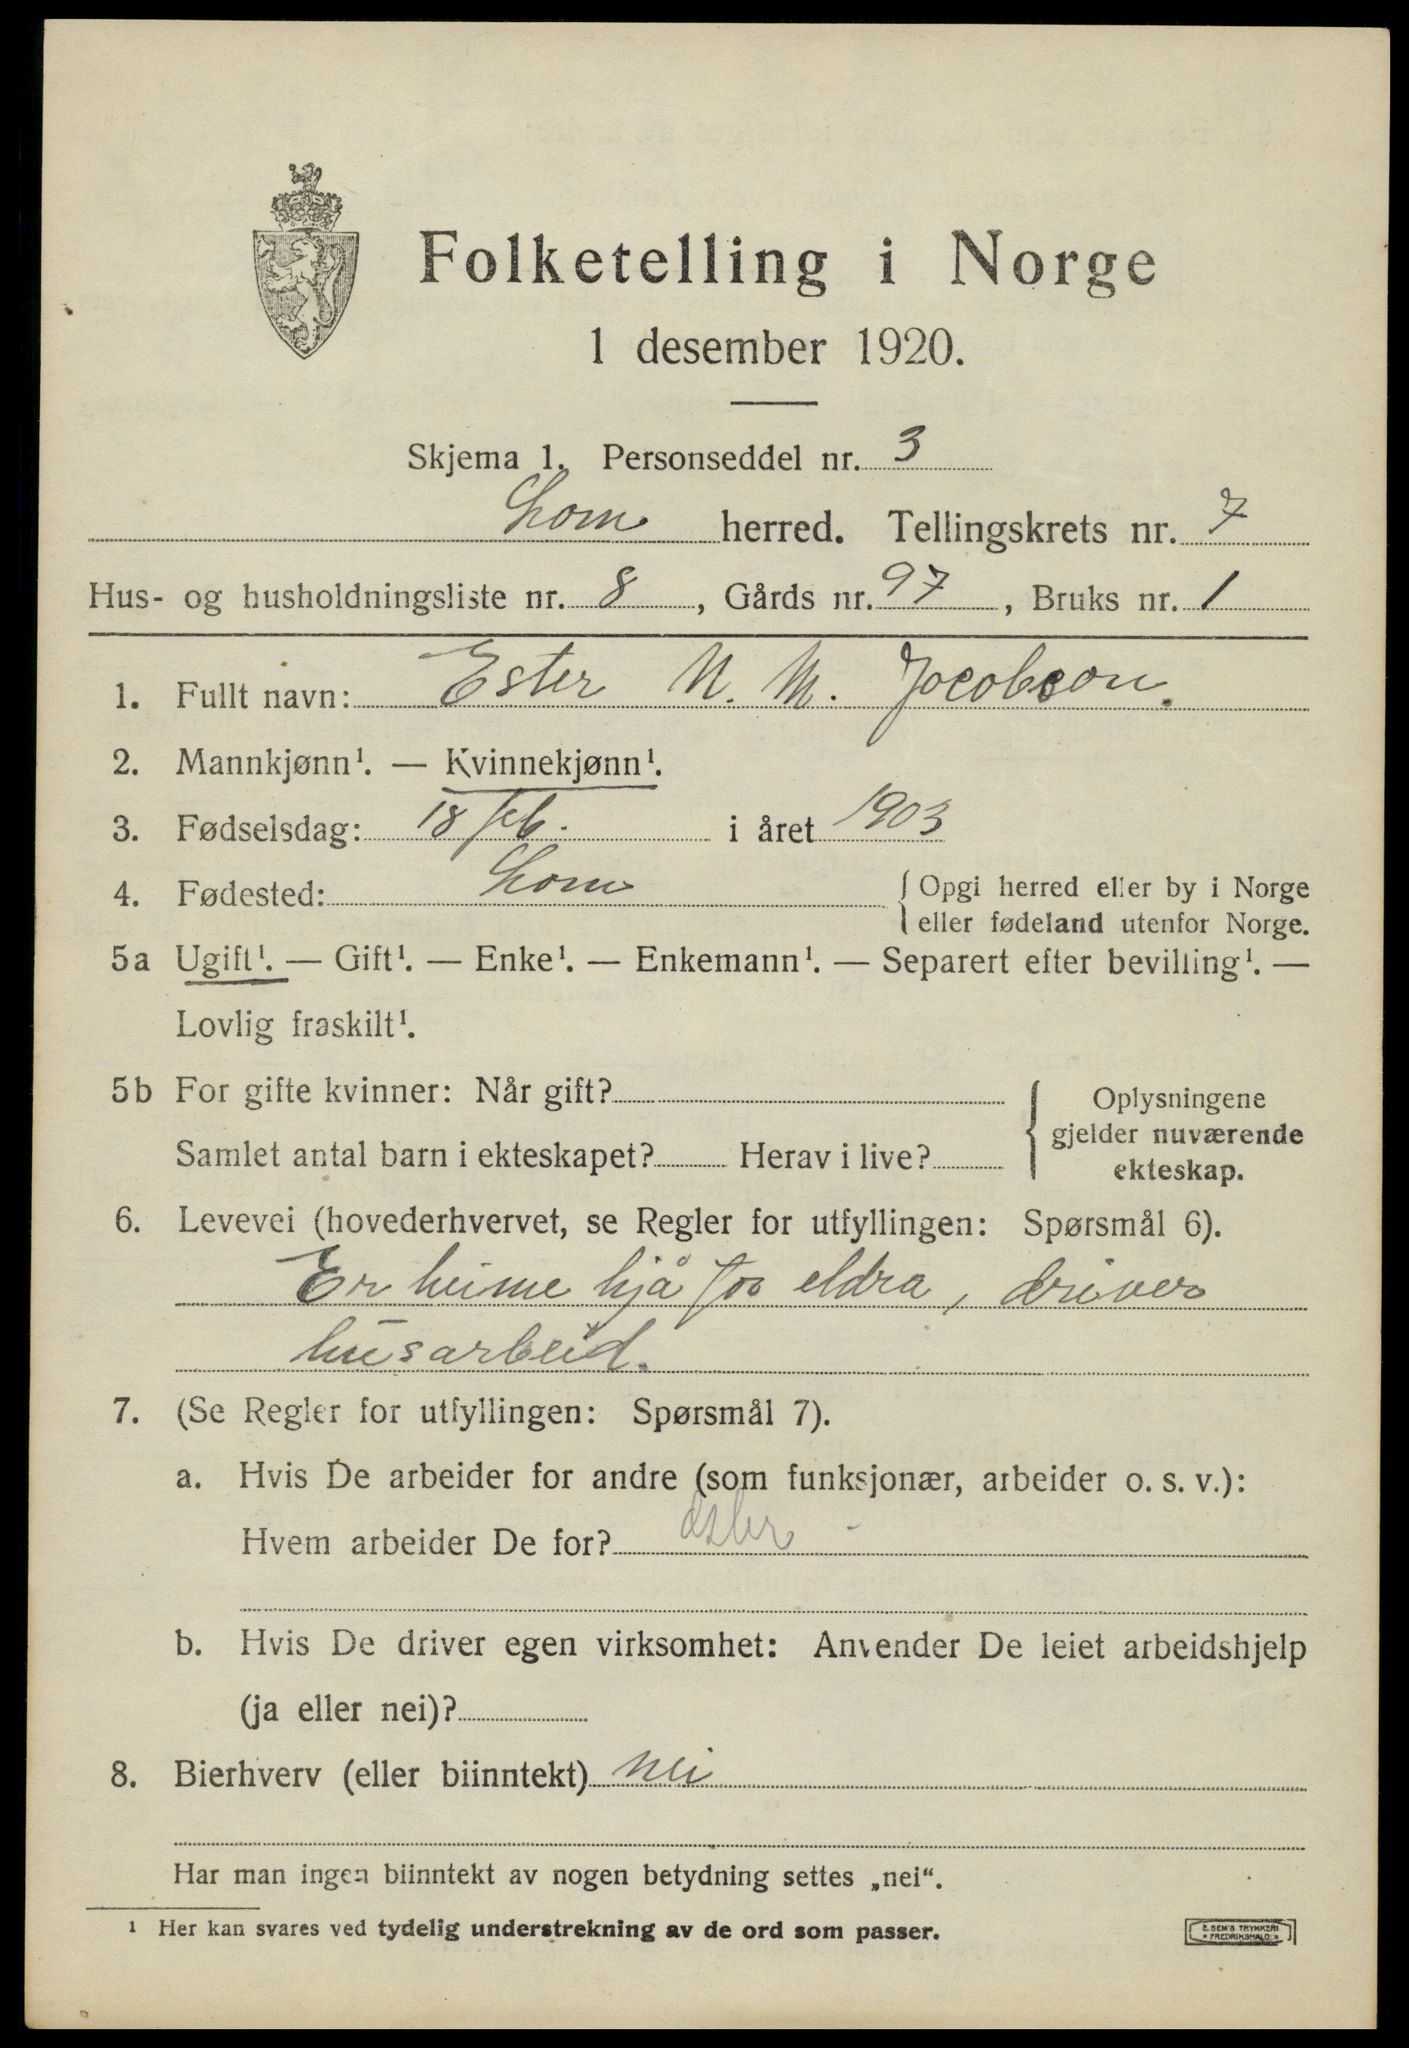 Folketelling i Norge
1 desember 1920.
Skjema 1. Personseddel nr. 3
Lom herred. Tellingskrets nr. 7
Hus- og husholdningsliste nr. 8, Gårds nr. 97, Bruks nr. 1
1. Fullt navn: Ester N. M. Jocobson.
2. Mannkjønn¹. — Kvinnekjønn¹.
3. Fødselsdag: 18 feb. i året 1903
4. Fødested: Lom { Opgi herred eller by i Norge
eller fødeland utenfor Norge.
5a Ugift¹. — Gift¹. — Enke¹. — Enkemann¹. — Separert efter bevilling¹. —
Lovlig fraskilt¹.
5b For gifte kvinner: Når gift?
Samlet antal barn i ekteskapet? Herav i live?
{ Oplysningene
gjelder nuværende
ekteskap.
6. Levevei (hovederhvervet, se Regler for utfyllingen: Spørsmål 6).
Er heime hjå for eldra, driver
husarbeid.
7. (Se Regler for utfyllingen: Spørsmål 7).
a. Hvis De arbeider for andre (som funksjonær, arbeider o. s. v.):
Hvem arbeider De for?
b. Hvis De driver egen virksomhet: Anvender De leiet arbeidshjelp
(ja eller nei)?
8. Bierhverv (eller biinntekt) nei
Har man ingen biinntekt av nogen betydning settes „nei“.
¹ Her kan svares ved tydelig understrekning av de ord som passer.
E. SEM'S TRYKKERI
FREDRIKSHALD